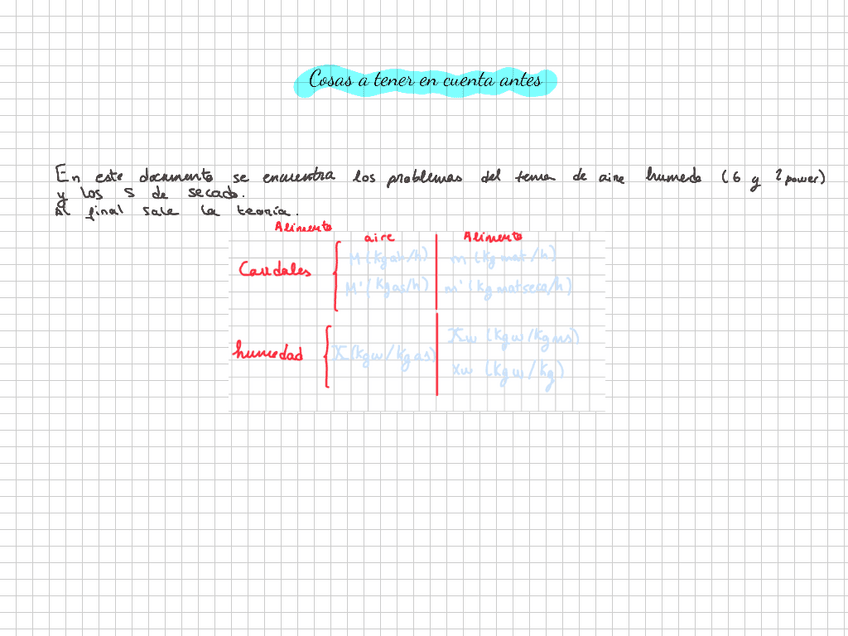 Cosas a tener en cuenta antes
En este documento se encuentra los problemas del tema de aire humedo (6 y 2 power)
y los 5 de secado.
Al final sale la teoría.
Alimento
aire Alimento
Caudales M (kg ah/h) m (kg mat/h)
M' (kg as/h) m' (kg mat seca/h)
humedad X (kg w/kg as) Xw (kg w/kg ms)
xw (kg w/kg)